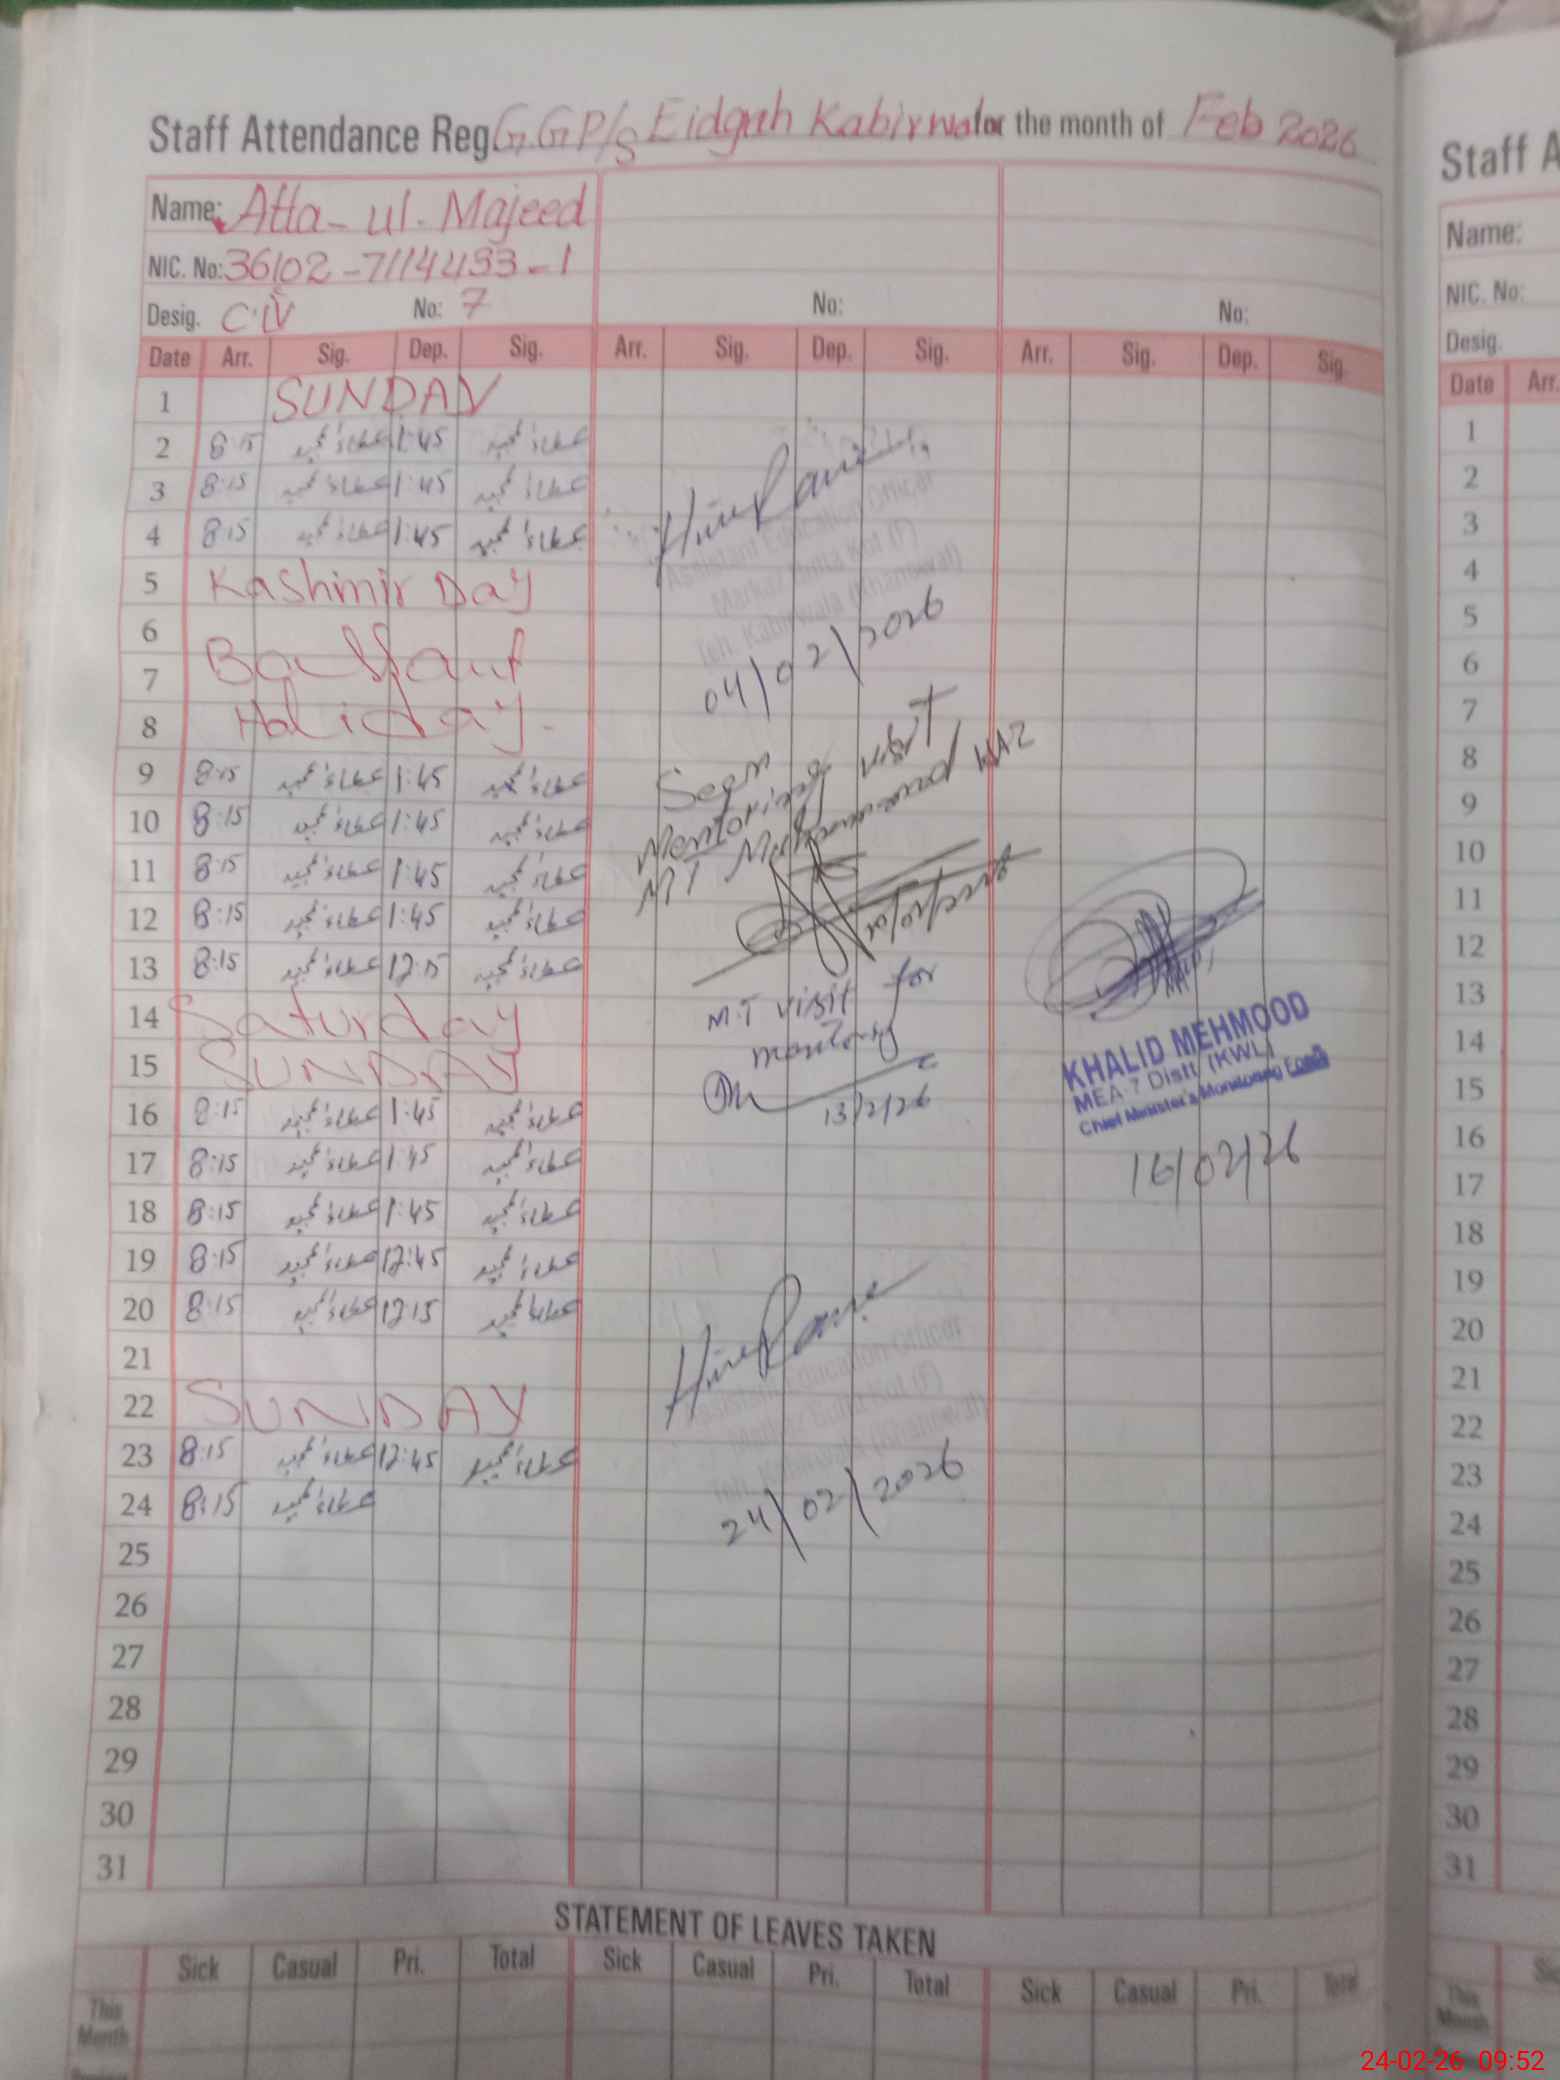 Staff Attendance Reg. G.GP/S Eidgah Kabirwala for the month of Feb 2026
Name: Atta-ul-Majeed
NIC. No: 36102-7114433-1
Desig. C.IV No: 7 No: No:
Date Arr. Sig. Dep. Sig. Arr. Sig. Dep. Sig. Arr. Sig. Dep. Sig.
1 SUNDAY
2 8:15 عطاء المجید 1:45 عطاء المجید
3 8:15 عطاء المجید 1:45 عطاء المجید
4 8:15 عطاء المجید 1:45 عطاء المجید
5 Kashmir Day
6
7 Basant
8 Holiday.
9 8:15 عطاء المجید 1:45 عطاء المجید
10 8:15 عطاء المجید 1:45 عطاء المجید
11 8:15 عطاء المجید 1:45 عطاء المجید
12 8:15 عطاء المجید 1:45 عطاء المجید
13 8:15 عطاء المجید 12:15 عطاء المجید
14 Saturday
15 SUNDAY
16 8:15 عطاء المجید 1:45 عطاء المجید
17 8:15 عطاء المجید 1:45 عطاء المجید
18 8:15 عطاء المجید 1:45 عطاء المجید
19 8:15 عطاء المجید 12:45 عطاء المجید
20 8:15 عطاء المجید 12:15 عطاء المجید
21
22 SUNDAY
23 8:15 عطاء المجید 12:45 عطاء المجید
24 8:15 عطاء المجید
25
26
27
28
29
30
31
Assistant Education Officer
Markaz Kot (F)
Teh. Kabirwala (Khanewal)
04/02/2026
Seen
Mentoring visit
MT Muhammad
M.T visit for
13/2/26
KHALID MEHMOOD
MEA-7 Distt (KWL)
Chief Minister's Monitoring Force
16/02/26
Assistant Education Officer
Markaz Kot (F)
Teh. Kabirwala (Khanewal)
24/02/2026
STATEMENT OF LEAVES TAKEN
Sick Casual Pri. Total Sick Casual Pri. Total Sick Casual Pri. Total
This
Month
Staff A
Name:
NIC. No:
Desig.
Date Arr.
1
2
3
4
5
6
7
8
9
10
11
12
13
14
15
16
17
18
19
20
21
22
23
24
25
26
27
28
29
30
31
This
Month
24-02-26 09:52